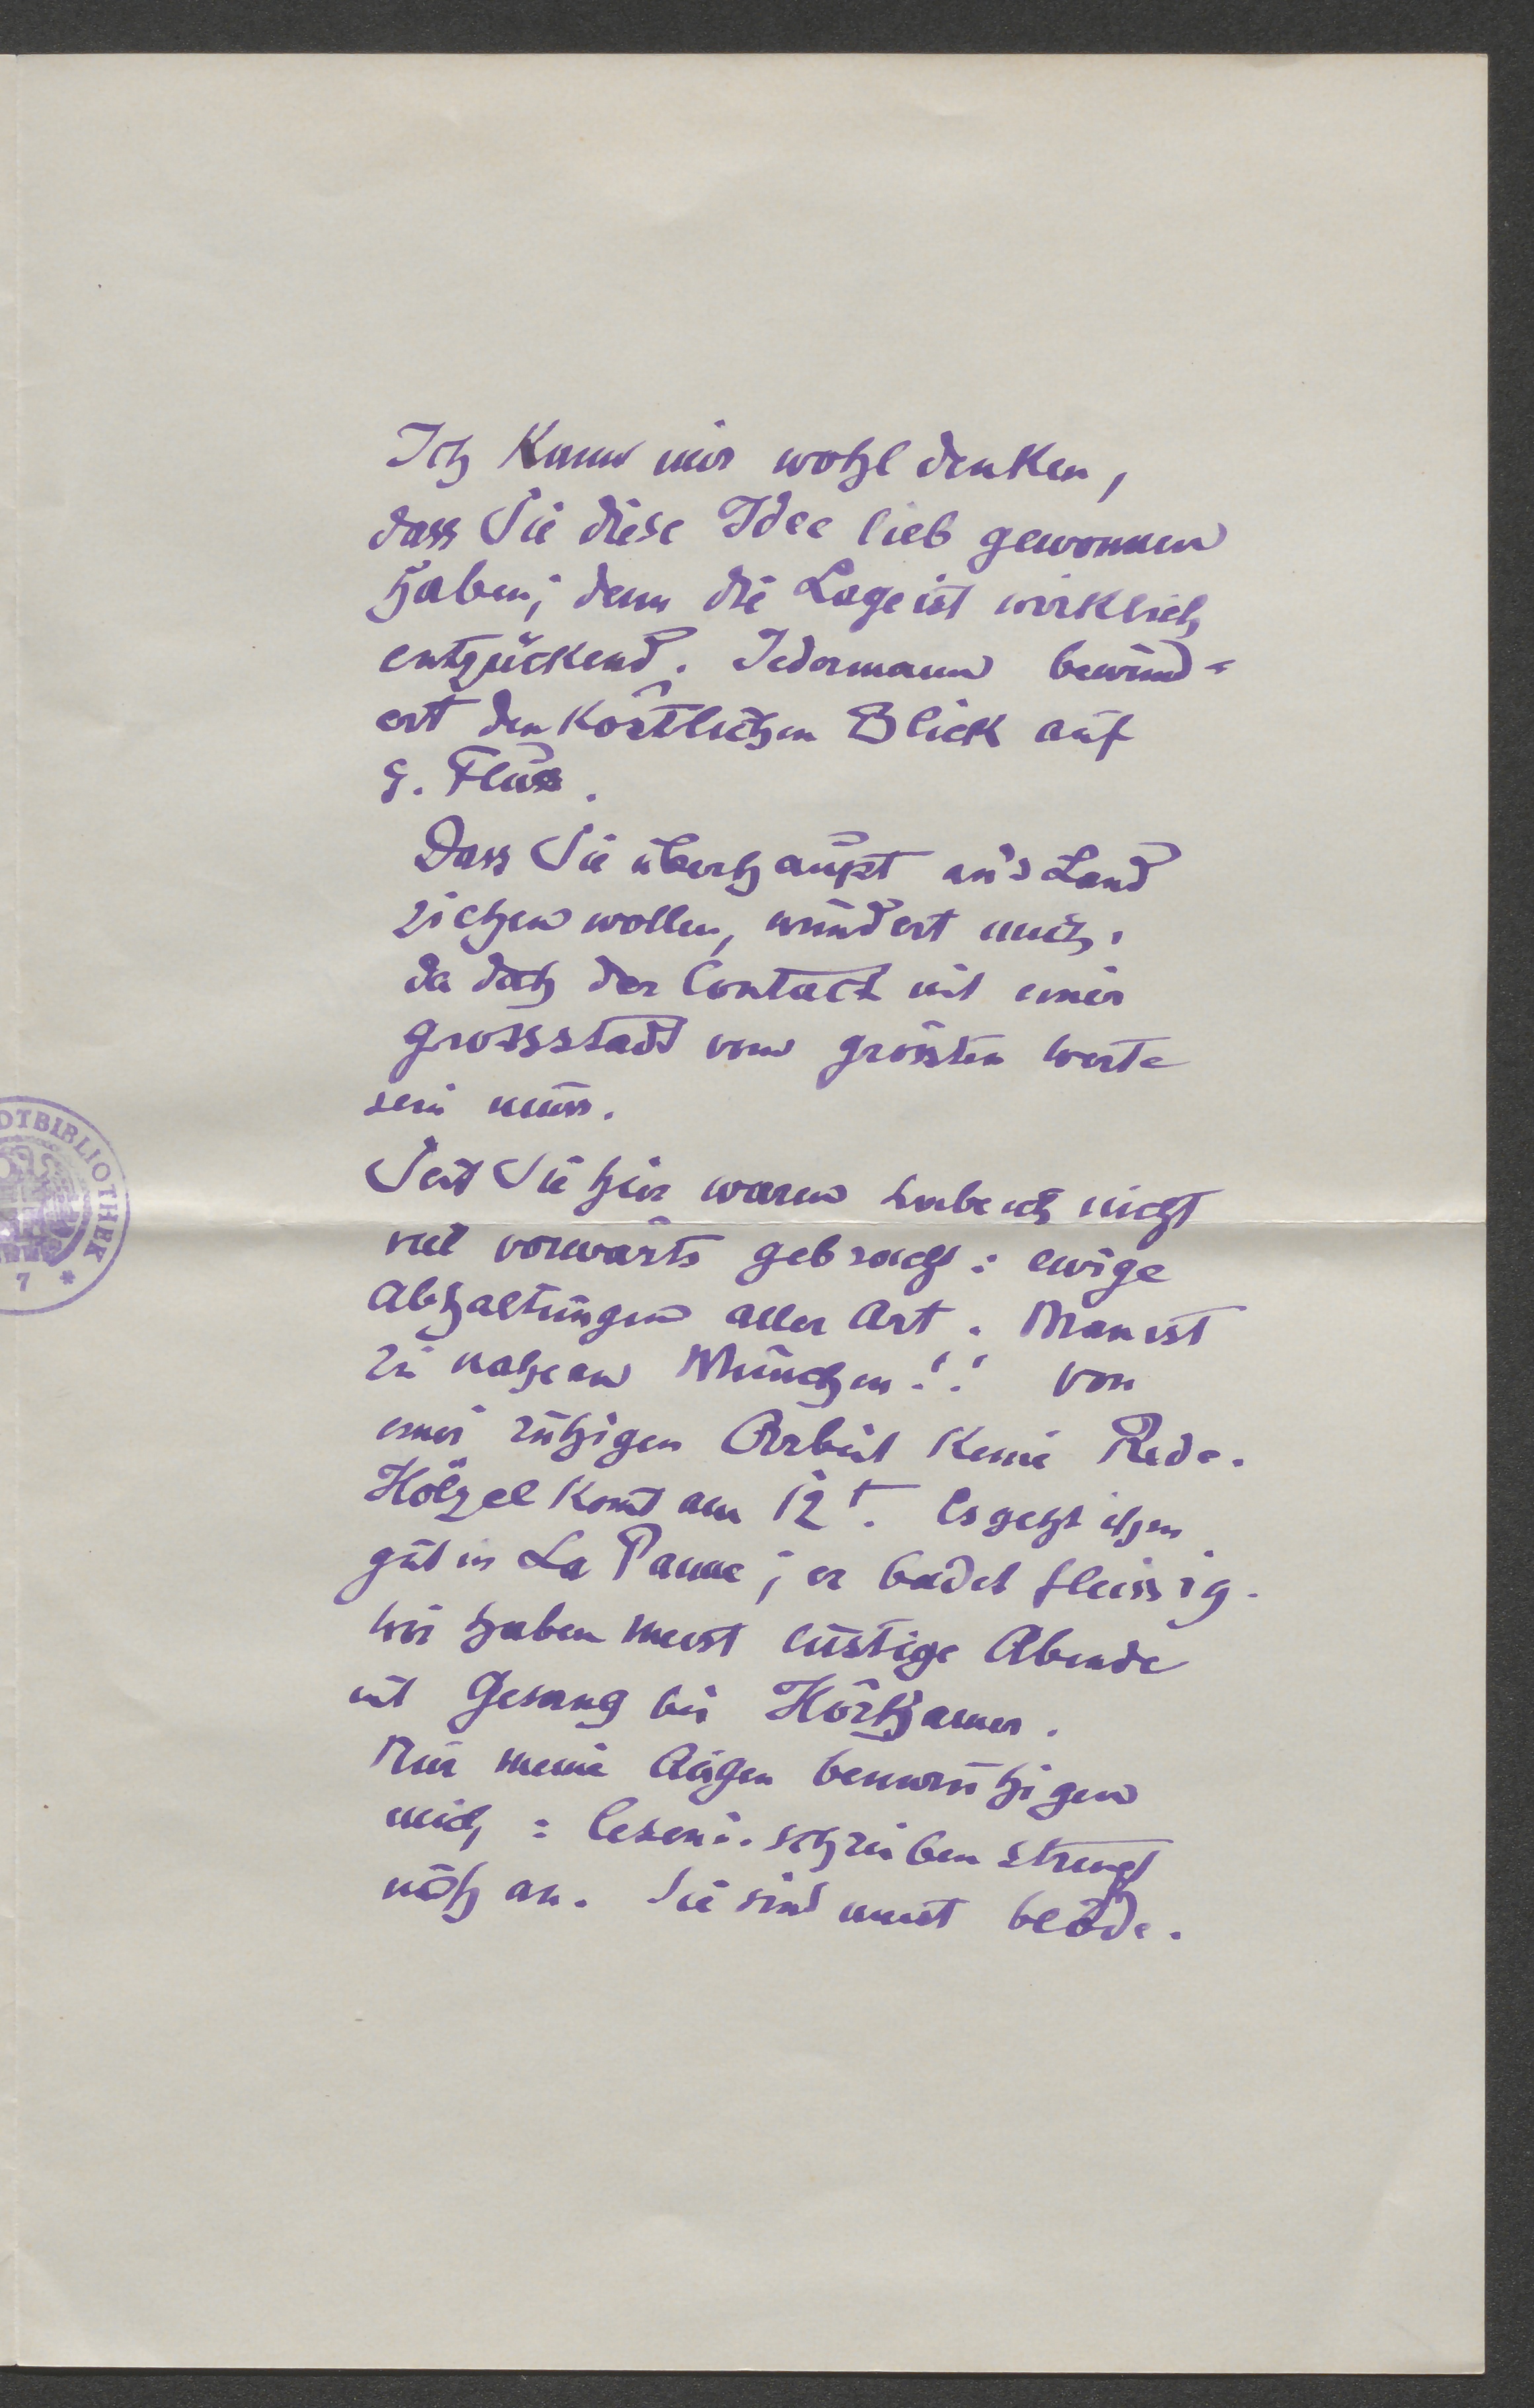 Ich kann mir wohl denken,
dass Sie diese Idee lieb gewonnen
haben; denn die Lage ist wirklich
entzückend. Jedermann bewund-
ert den köstlichen Blick auf
d. Fluss.
Dass Sie überhaupt auf's Land
ziehen wollen, wundert mich,
da doch der Contact mit einer
Grossstadt vom grössten Werte
sein muss.
Seit Sie hier waren habe ich nicht
viel vorwärts gebracht: ewige
Abhaltungen aller Art. Man ist
zu nahe an München!! von
einer ruhigen Arbeit keine Rede.
Hölzel komt am 12t. Es geht ihm
gut in La Panne; er badet fleissig.
Wir haben meist lustige Abende
mit Gesang bei Hörhamer.
Nur meine Augen beunruhigen
mich: lesen u. schreiben strengt
mich an. Sie sind meist blöde.
DTBIBLIOTHEK
7 *